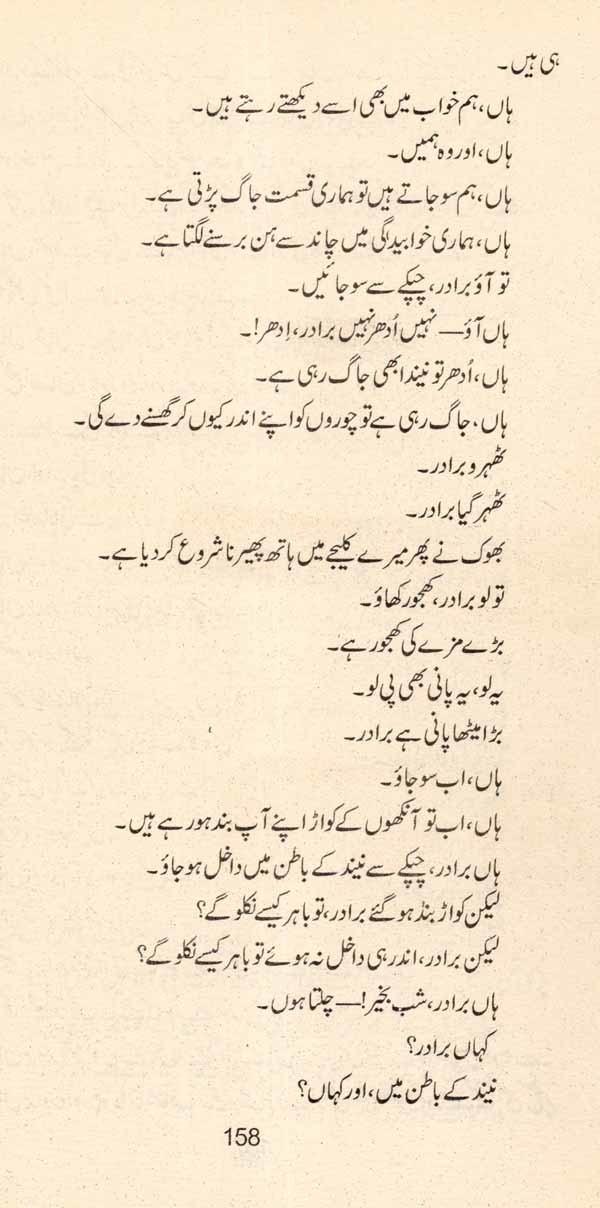 ہی ہیں۔
ہاں، ہم خواب میں بھی اسے دیکھتے رہتے ہیں۔
ہاں، اور وہ ہمیں۔
ہاں، ہم سو جاتے ہیں تو ہماری قسمت جاگ پڑتی ہے۔
ہاں، ہماری خوابیدگی میں چاند سے ہن برسنے لگتا ہے۔
تو آؤ برادر، چپکے سے سو جائیں۔
ہاں آؤ— نہیں اُدھر نہیں برادر، اِدھر!۔
ہاں، اُدھر تو نیند ابھی جاگ رہی ہے۔
ہاں، جاگ رہی ہے تو چوروں کو اپنے اندر کیوں کر گھسنے دے گی۔
ٹھہرو برادر۔
ٹھہر گیا برادر۔
بھوک نے پھر میرے کلیجے میں ہاتھ پھیرنا شروع کر دیا ہے۔
تو لو برادر، کھجور کھاؤ۔
بڑے مزے کی کھجور ہے۔
یہ لو، یہ پانی بھی پی لو۔
بڑا میٹھا پانی ہے برادر۔
ہاں، اب سو جاؤ۔
ہاں، اب تو آنکھوں کے کواڑ اپنے آپ بند ہو رہے ہیں۔
ہاں برادر، چپکے سے نیند کے باطن میں داخل ہو جاؤ۔
لیکن کواڑ بند ہو گئے برادر، تو باہر کیسے نکلو گے؟
لیکن برادر، اندر ہی داخل نہ ہوئے تو باہر کیسے نکلو گے؟
ہاں برادر، شب بخیر!— چلتا ہوں۔
کہاں برادر؟
نیند کے باطن میں، اور کہاں؟
158